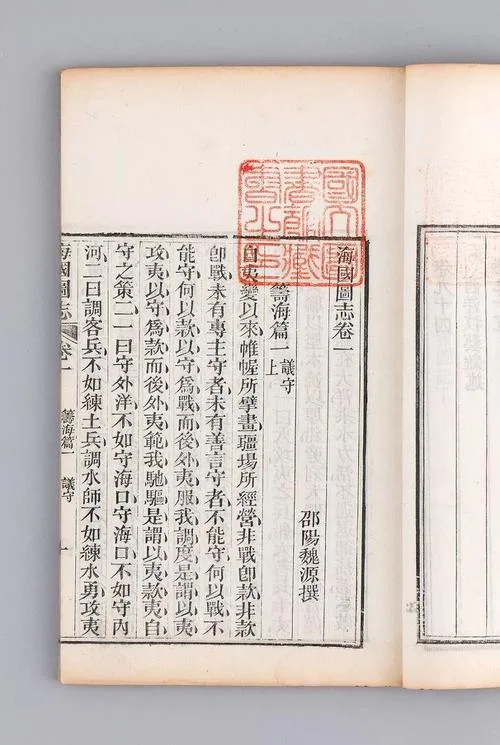 海國圖志卷一
邵陽魏源撰
籌海篇一 議守上
自夷變以來帷幄所擘畫疆場所經營非戰卽款非款
卽戰未有專主守者未有善言守者不能守何以戰不
能守何以款以守爲戰而後外夷服我調度是謂以夷
攻夷以守爲款而後外夷範我馳驅是謂以夷款夷自
守之策二一曰守外洋不如守海口守海口不如守內
河二曰調客兵不如練土兵調水師不如練水勇攻夷
海國圖志 卷一 籌海篇一 議守 一